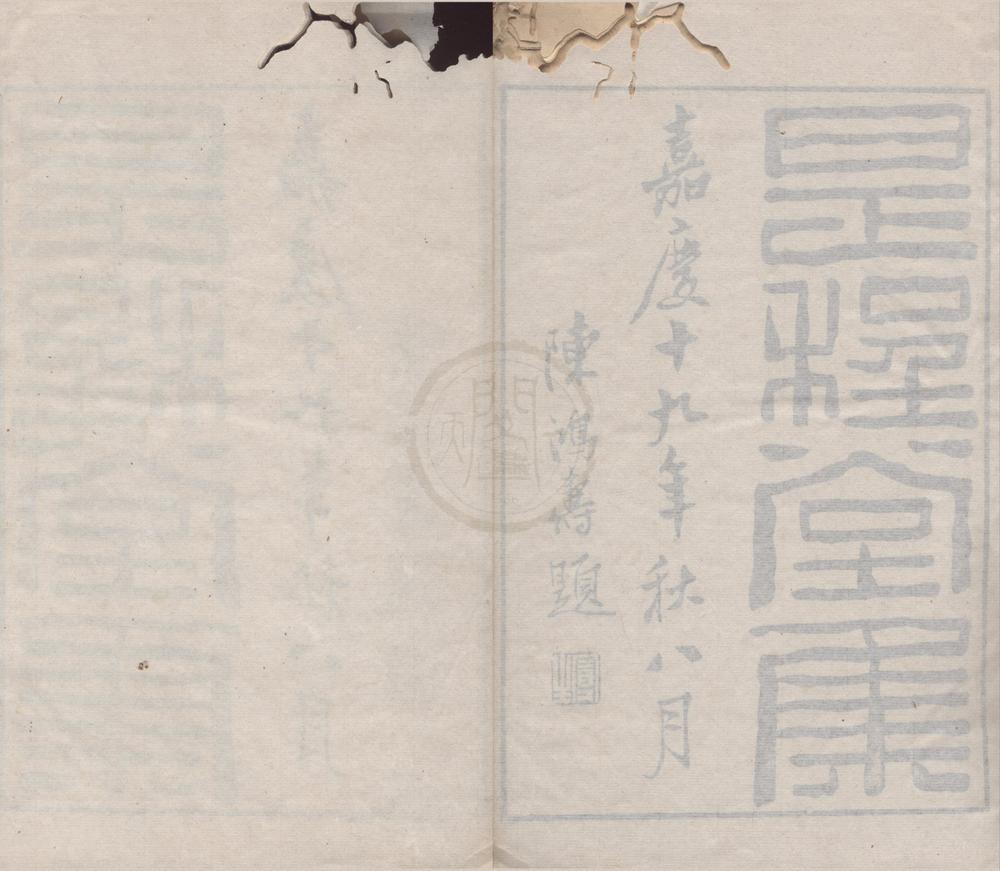 是程堂集
嘉慶十九年秋八月
陳鴻壽題